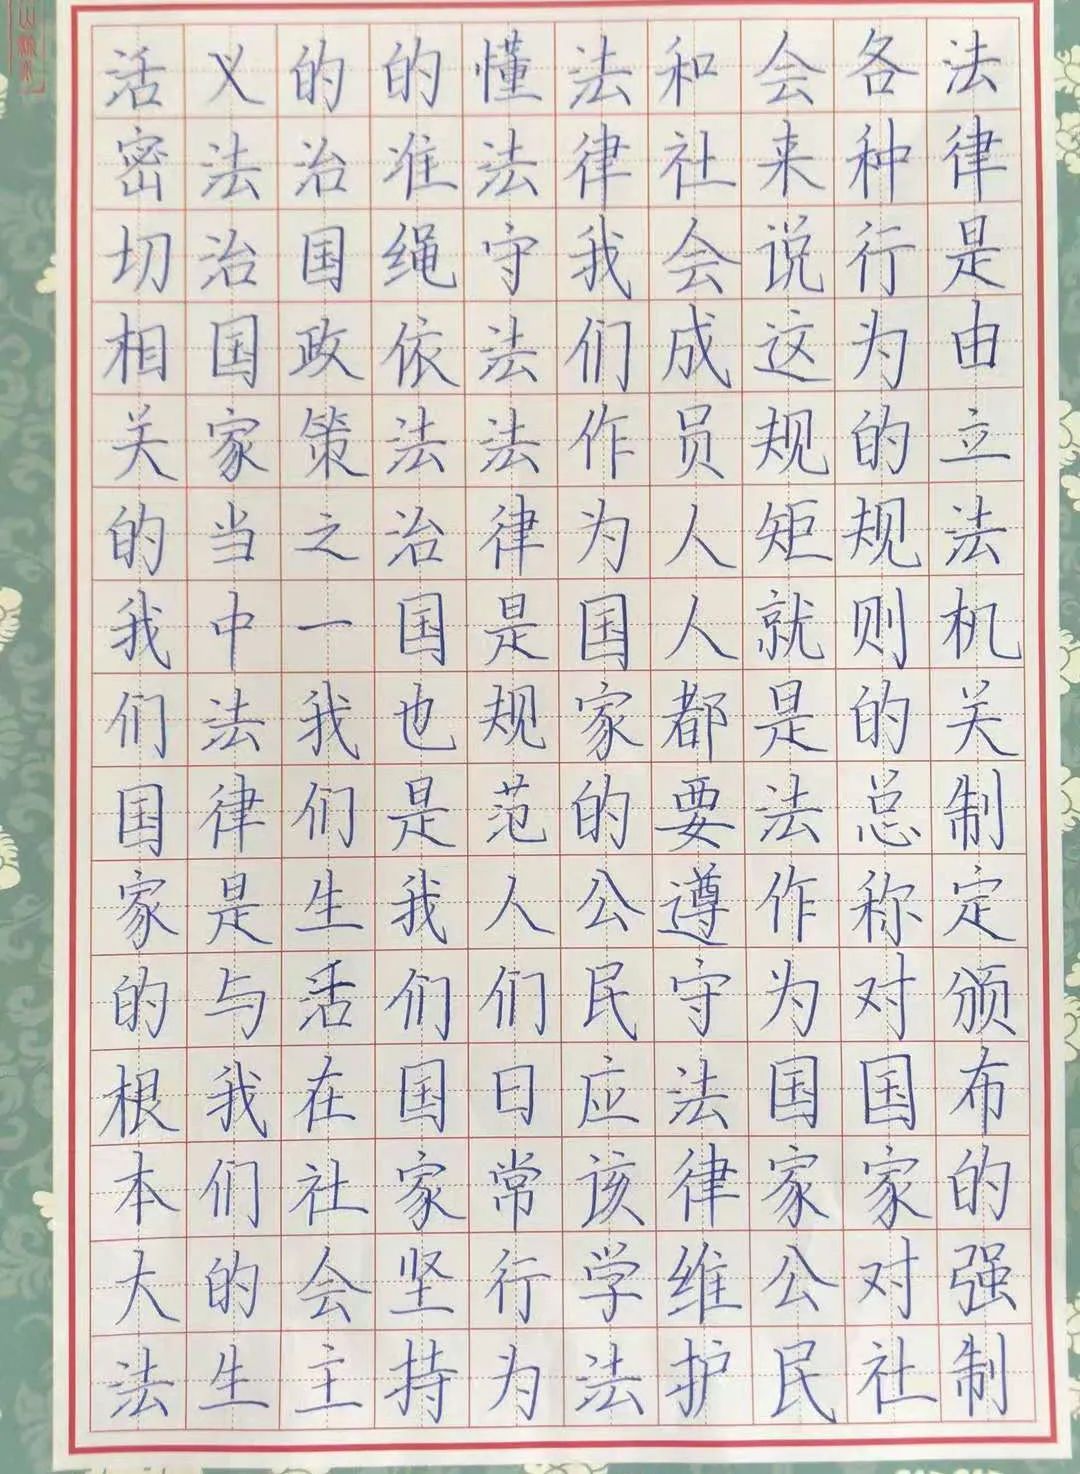 法律是由立法机关制定颁布的强制
各种行为的规则的总称对国家对社
会来说这规矩就是法作为国家公民
和社会成员人人都要遵守法律维护
法律我们作为国家的公民应该学法
懂法守法法律是规范人们日常行为
的准绳依法治国也是我们国家坚持
的治国政策之一我们生活在社会主
义法治国家当中法律是与我们的生
活密切相关的我们国家的根本大法